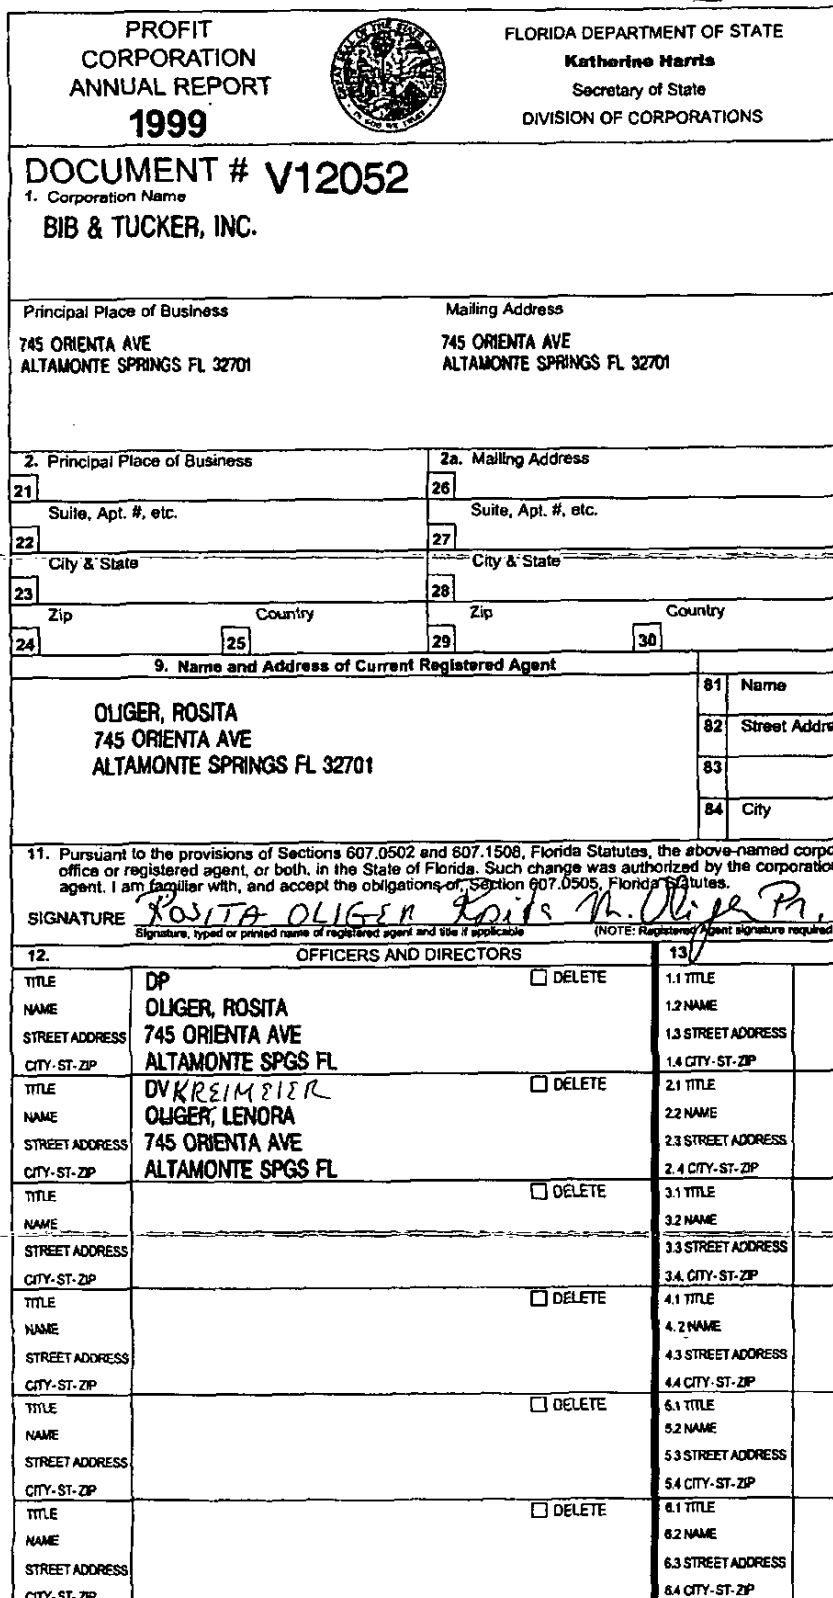 PROFIT
CORPORATION
ANNUAL REPORT
1999
FLORIDA DEPARTMENT OF STATE
Katherine Harris
Secretary of State
DIVISION OF CORPORATIONS
DOCUMENT # V12052
1. Corporation Name
BIB & TUCKER, INC.
Principal Place of Business
Mailing Address
745 ORIENTA AVE
ALTAMONTE SPRINGS FL 32701
745 ORIENTA AVE
ALTAMONTE SPRINGS FL 32701
2. Principal Place of Business
2a. Mailing Address
21
26
Suite, Apt. #, etc.
Suite, Apt. #, etc.
22
27
City & State
City & State
23
28
Zip
Country
Zip
Country
24
25
29
30
9. Name and Address of Current Registered Agent
81 Name
OLIGER, ROSITA
745 ORIENTA AVE
ALTAMONTE SPRINGS FL 32701
82 Street Addre
83
84 City
11. Pursuant to the provisions of Sections 607.0502 and 607.1508, Florida Statutes, the above-named corpo
office or registered agent, or both, in the State of Florida. Such change was authorized by the corporatio
agent. I am familiar with, and accept the obligations of, Section 607.0505, Florida Statutes.
SIGNATURE ROSITA OLIGER Rosita M. Oliger Pr.
Signature, typed or printed name of registered agent and title if applicable
(NOTE: Registered Agent signature required
12. OFFICERS AND DIRECTORS
13
TITLE DP DELETE
NAME OLIGER, ROSITA
STREET ADDRESS 745 ORIENTA AVE
CITY-ST-ZIP ALTAMONTE SPGS FL
1.1 TITLE
1.2 NAME
1.3 STREET ADDRESS
1.4 CITY-ST-ZIP
TITLE DV KREIMEIER DELETE
NAME OLIGER, LENORA
STREET ADDRESS 745 ORIENTA AVE
CITY-ST-ZIP ALTAMONTE SPGS FL
2.1 TITLE
2.2 NAME
2.3 STREET ADDRESS
2.4 CITY-ST-ZIP
TITLE DELETE
NAME
STREET ADDRESS
CITY-ST-ZIP
3.1 TITLE
3.2 NAME
3.3 STREET ADDRESS
3.4. CITY-ST-ZIP
TITLE DELETE
NAME
STREET ADDRESS
CITY-ST-ZIP
4.1 TITLE
4.2 NAME
4.3 STREET ADDRESS
4.4 CITY-ST-ZIP
TITLE DELETE
NAME
STREET ADDRESS
CITY-ST-ZIP
5.1 TITLE
5.2 NAME
5.3 STREET ADDRESS
5.4 CITY-ST-ZIP
TITLE DELETE
NAME
STREET ADDRESS
CITY-ST-ZIP
6.1 TITLE
6.2 NAME
6.3 STREET ADDRESS
6.4 CITY-ST-ZIP